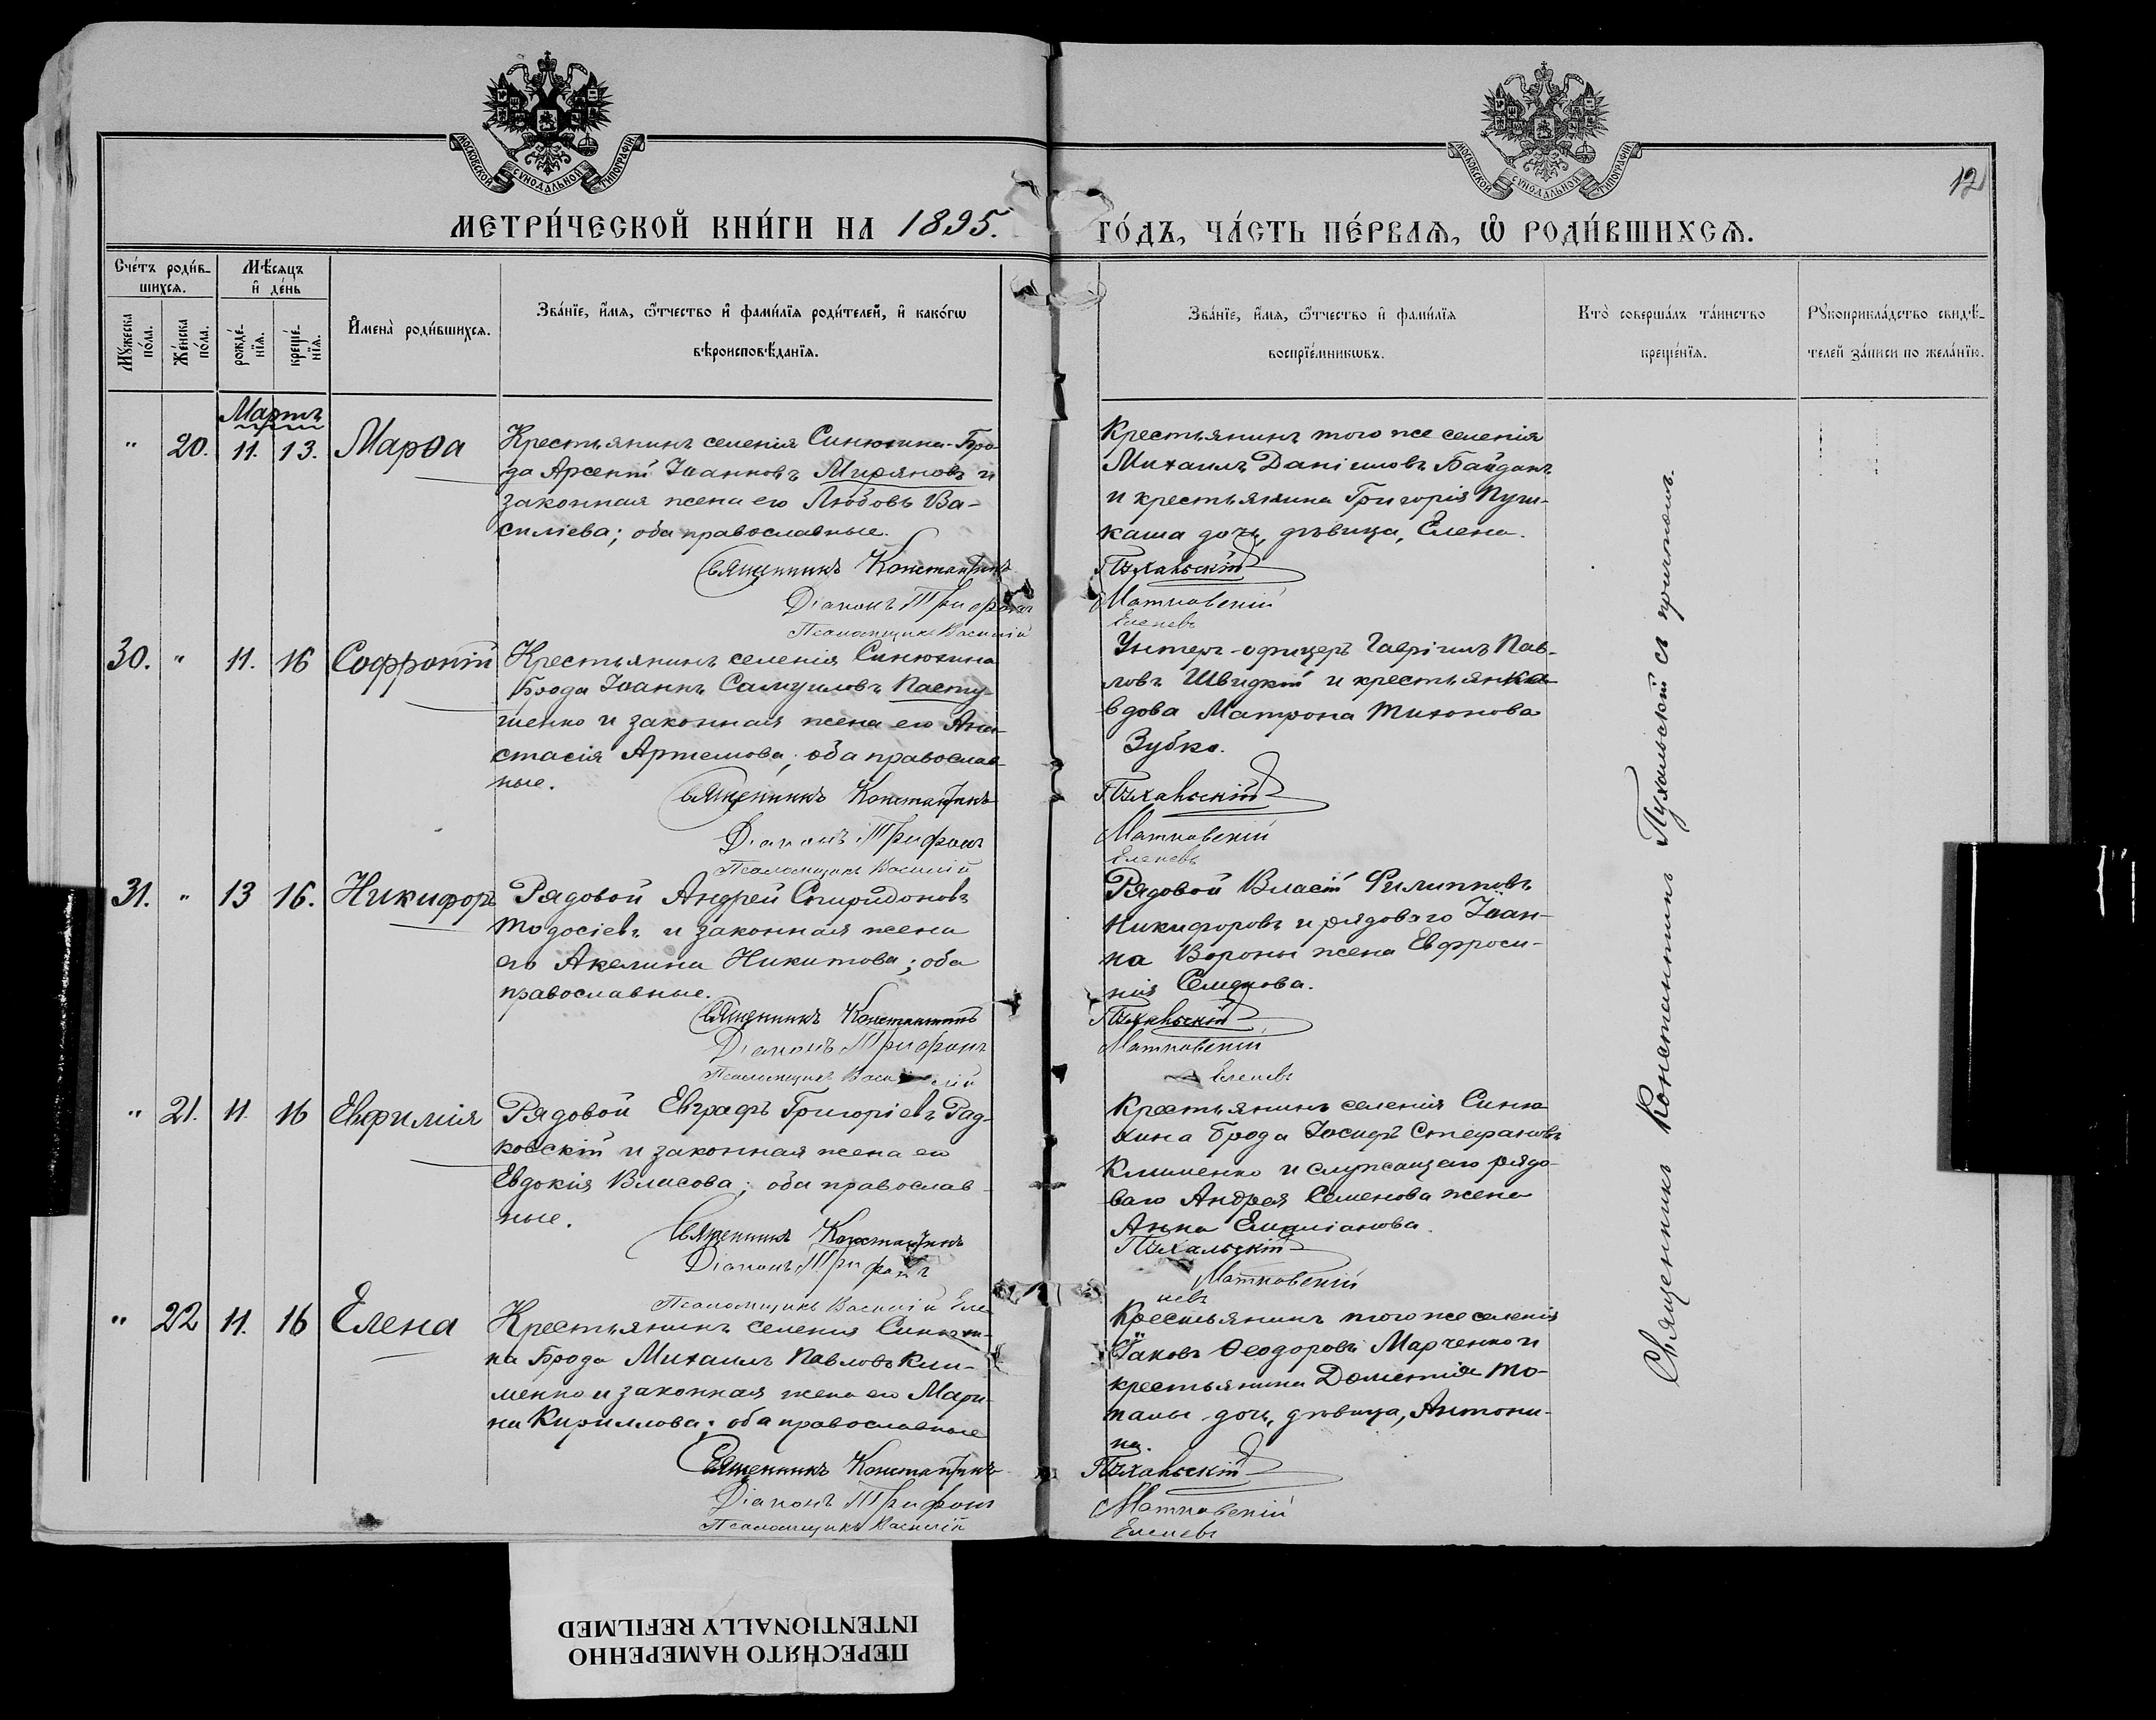 МОСКОВСКОЙ СѴНОДАЛЬНОЙ ТИПОГРАФІИ
МОСКОВСКОЙ СѴНОДАЛЬНОЙ ТИПОГРАФІИ
12
МЕТРИ́ЧЕСКОЙ КНИ́ГИ НА 1895.
ГО́ДЪ, ЧА́СТЬ ПЕ́РВАѦ, Ѡ РОДИ́ВШИХСѦ.
Сче́тъ роди́в-
шихсѧ.
Мѣ́сѧцъ
и де́нь
Мꙋ́жеска по́ла.
Же́нска по́ла.
рожде́-нїѧ.
креще́-нїѧ.
Имена̀ роди́вшихсѧ.
Зва́нїе, и́мѧ, ѻ́тчество и фами́лїѧ роди́телей, и како́гѡ
вѣроисповѣ́данїѧ.
Зва́нїе, и́мѧ, ѻ́тчество и фами́лїѧ
воспрїе́мникѡвъ.
Кто̀ соверша́лъ та́инство
креще́нїѧ.
Рꙋкоприкла́дство свидѣ́-
телей за́писи по жела́нїю.
Мартъ
" 20. 11. 13. Марѳа
Крестьянинъ селенія Синюхина-Бро-
да Арсеній Іоанновъ Миряновъ и
законная жена его Любовь Ва-
силіева; оба православные.
Священникъ Константинъ
Діаконъ Трифонъ
Псаломщикъ Василій
Крестьянинъ того же селенія
Михаилъ Даніиловъ Байданъ
и крестьянина Григорія Пуги-
каша дочь, дѣвица, Елена.
Пухальскій
Матковскій
Еленевъ
30. " 11. 16 Софроній
Крестьянинъ селенія Синюхина
Брода Іоаннъ Самуиловъ Пасту-
шенко и законная жена его Ана-
стасія Артемова; оба православ-
ные.
Священникъ Константинъ
Діаконъ Трифонъ
Псаломщикъ Василій
Унтеръ-офицеръ Гавріилъ Пав-
ловъ Швидкій и крестьянка
вдова Матрона Тихонова
Зубко.
Пухальскій
Матковскій
Еленевъ
31. " 13 16. Никифоръ
Рядовой Андрей Спиридоновъ
Тодосіевъ и законная жена
его Акелина Никитова; оба
православные.
Священникъ Константинъ
Діаконъ Трифонъ
Псаломщикъ Василій
Рядовой Власій Филипповъ
Никифоровъ и рядоваго Іоан-
на Вороны жена Евфроси-
нія Семенова.
Пухальскій
Матковскій
Еленевъ
" 21. 11. 16 Евфимія
Рядовой Евграфъ Григоріевъ Рад-
ковскій и законная жена его
Евдокія Власова; оба православ-
ные.
Священникъ Константинъ
Діаконъ Трифонъ
Псаломщикъ Василій Еле
Крестьянинъ селенія Синю-
хина Брода Іосифъ Стефановъ
Клименко и служащаго рядо-
ваго Андрея Семенова жена
Анна Емиліанова.
Пухальскій
Матковскій
невъ
" 22 11. 16 Елена
Крестьянинъ селенія Синюхи-
на Брода Михаилъ Павловъ Кли-
менко и законная жена его Мари-
на Кириллова; оба православные
Священникъ Константинъ
Діаконъ Трифонъ
Псаломщикъ Василій
Крестьянинъ того же селенія
Іаковъ Ѳеодоровъ Марченко и
крестьянина Дометія То-
палы дочь, дѣвица, Антони-
на.
Пухальскій
Матковскій
Еленевъ
Священникъ Константинъ Пухальскій съ причтомъ.
ПЕРЕСНЯТО НАМЕРЕННО
INTENTIONALLY REFILMED